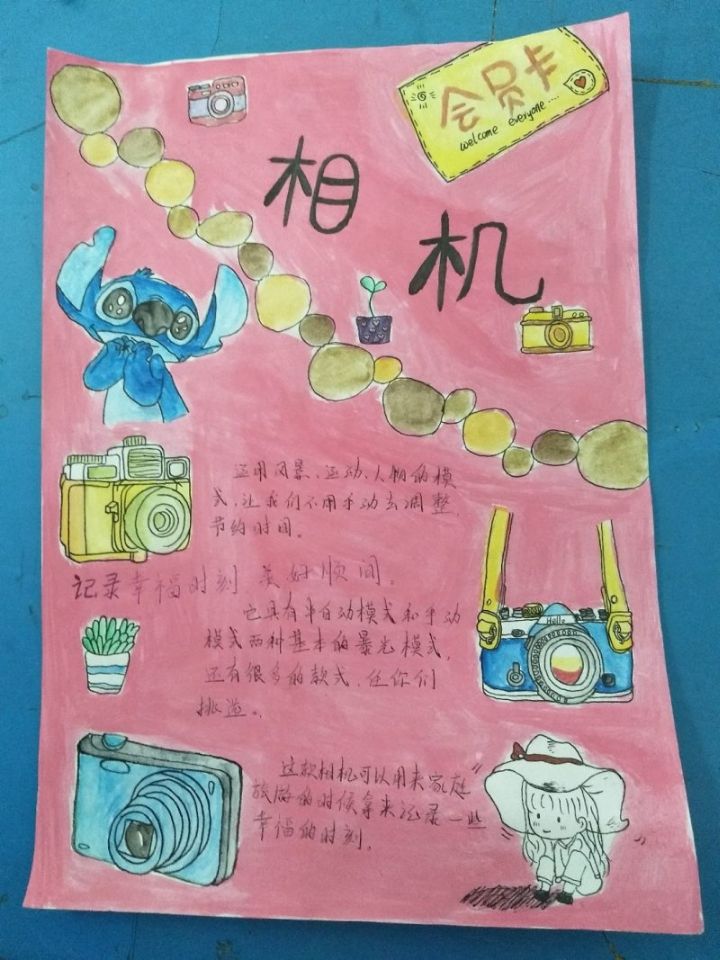 会员卡
welcome everyone....
相机
运用风景、运动、人物的模
式,让我们不用手动去调整,
节约时间。
记录幸福时刻 美好顺间。
它具有半自动模式和手动
模式两种基本的暴光模式,
还有很多的款式,任你们
挑选。
Hello
这款相机可以用来家庭
旅游的时候拿来记录一些
幸福的时刻。